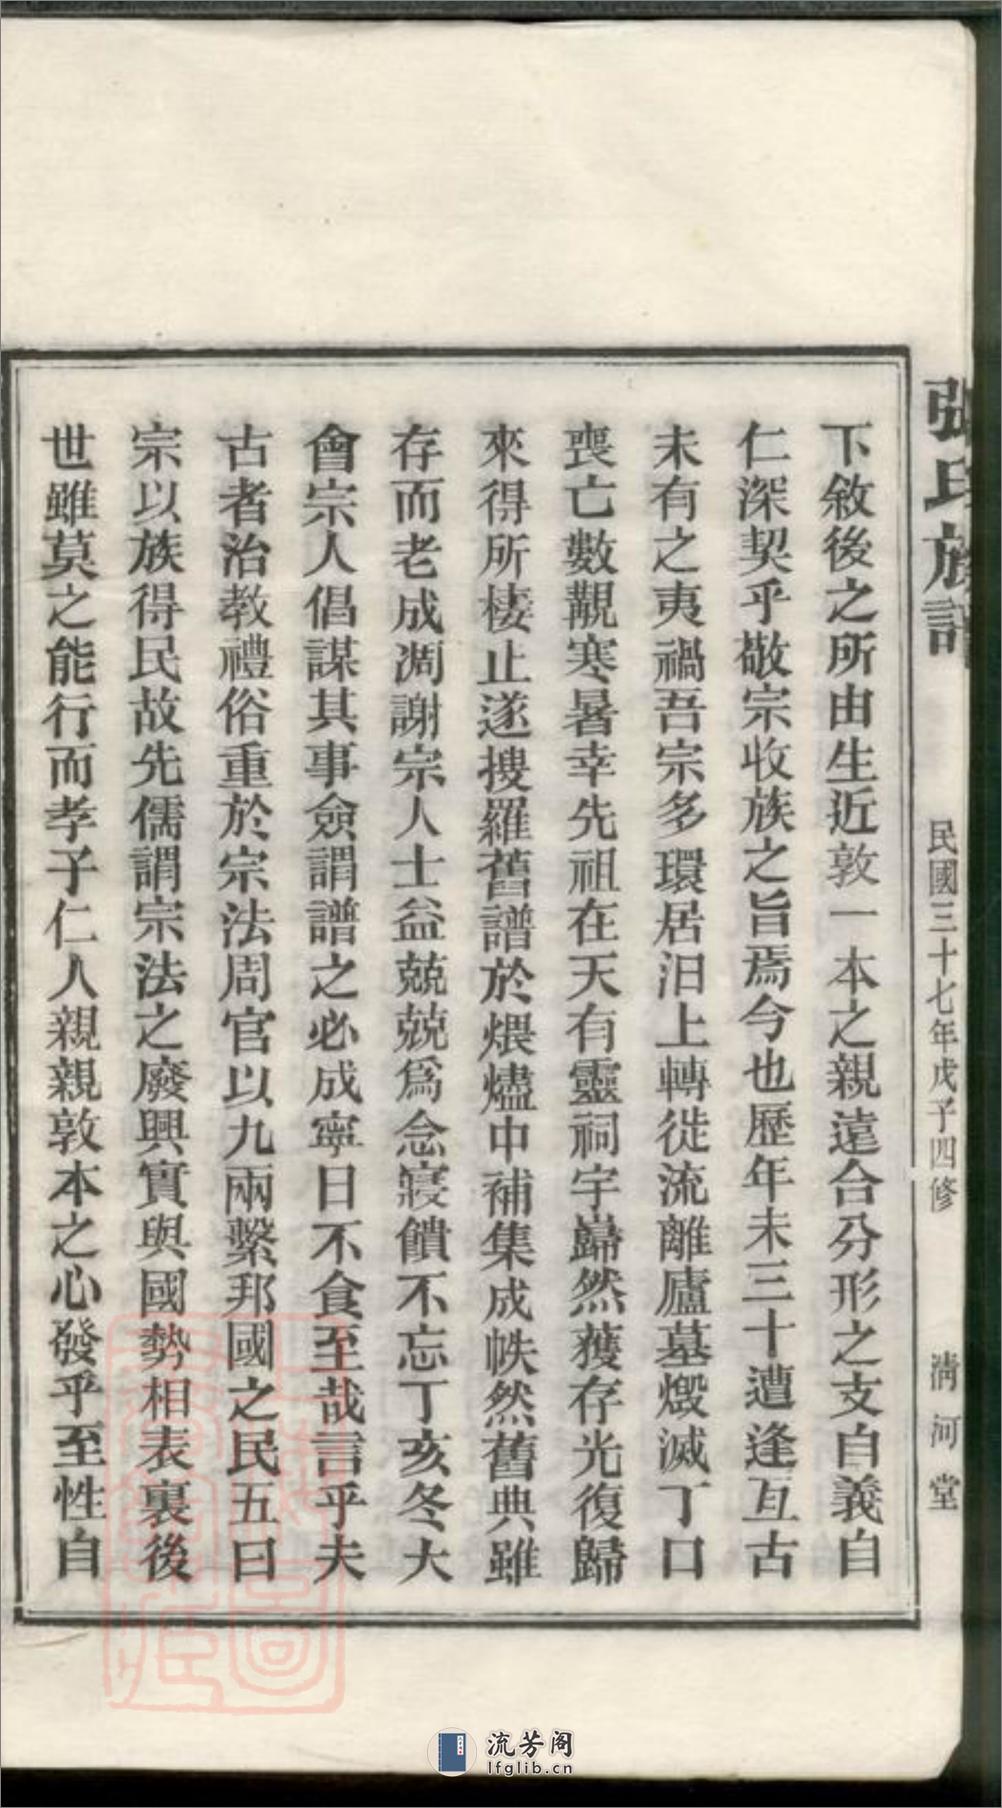 張氏族譜 民國三十七年戊子四修 清河堂
下敘後之所由生近敦一本之親遠合分形之支自義自
仁深契乎敬宗收族之旨焉今也歷年未三十遭逢亙古
未有之夷禍吾宗多環居汨上轉徙流離廬墓燬滅丁口
喪亡數覯寒暑幸先祖在天有靈祠宇巋然獲存光復歸
來得所棲止遂搜羅舊譜於煨燼中補集成帙然舊典雖
存而老成凋謝宗人士益兢兢爲念寢饋不忘丁亥冬大
會宗人倡謀其事僉謂譜之必成寧日不食至哉言乎夫
古者治教禮俗重於宗法周官以九兩繫邦國之民五曰
宗以族得民故先儒謂宗法之廢興實與國勢相表裏後
世雖莫之能行而孝子仁人親親敦本之心發乎至性自
流芳阁
lfglib.cn